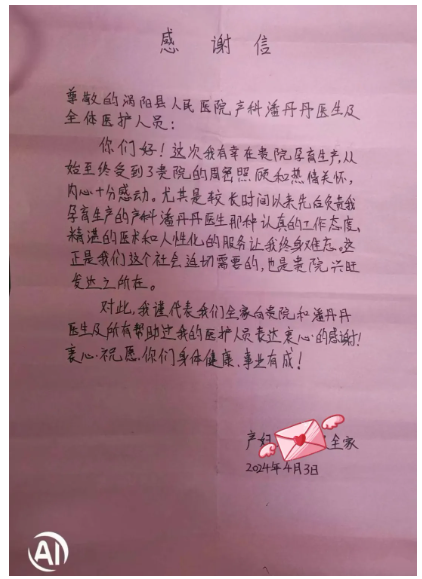 感谢信
尊敬的涡阳县人民医院产科潘丹丹医生及
全体医护人员:
你们好!这次我有幸在贵院孕育生产,从
始至终受到了贵院的周密照顾和热情关怀,
内心十分感动。尤其是较长时间以来先后负责我
孕育生产的产科潘丹丹医生那种认真的工作态度、
精湛的医术和人性化的服务让我终身难忘。这
正是我们这个社会迫切需要的,也是贵院兴旺
发达之所在。
对此,我谨代表我们全家向贵院和潘丹丹
医生及所有帮助过我的医护人员表达衷心的感谢!
衷心祝愿你们身体健康、事业有成!
产妇 全家
2024年4月3日
AI